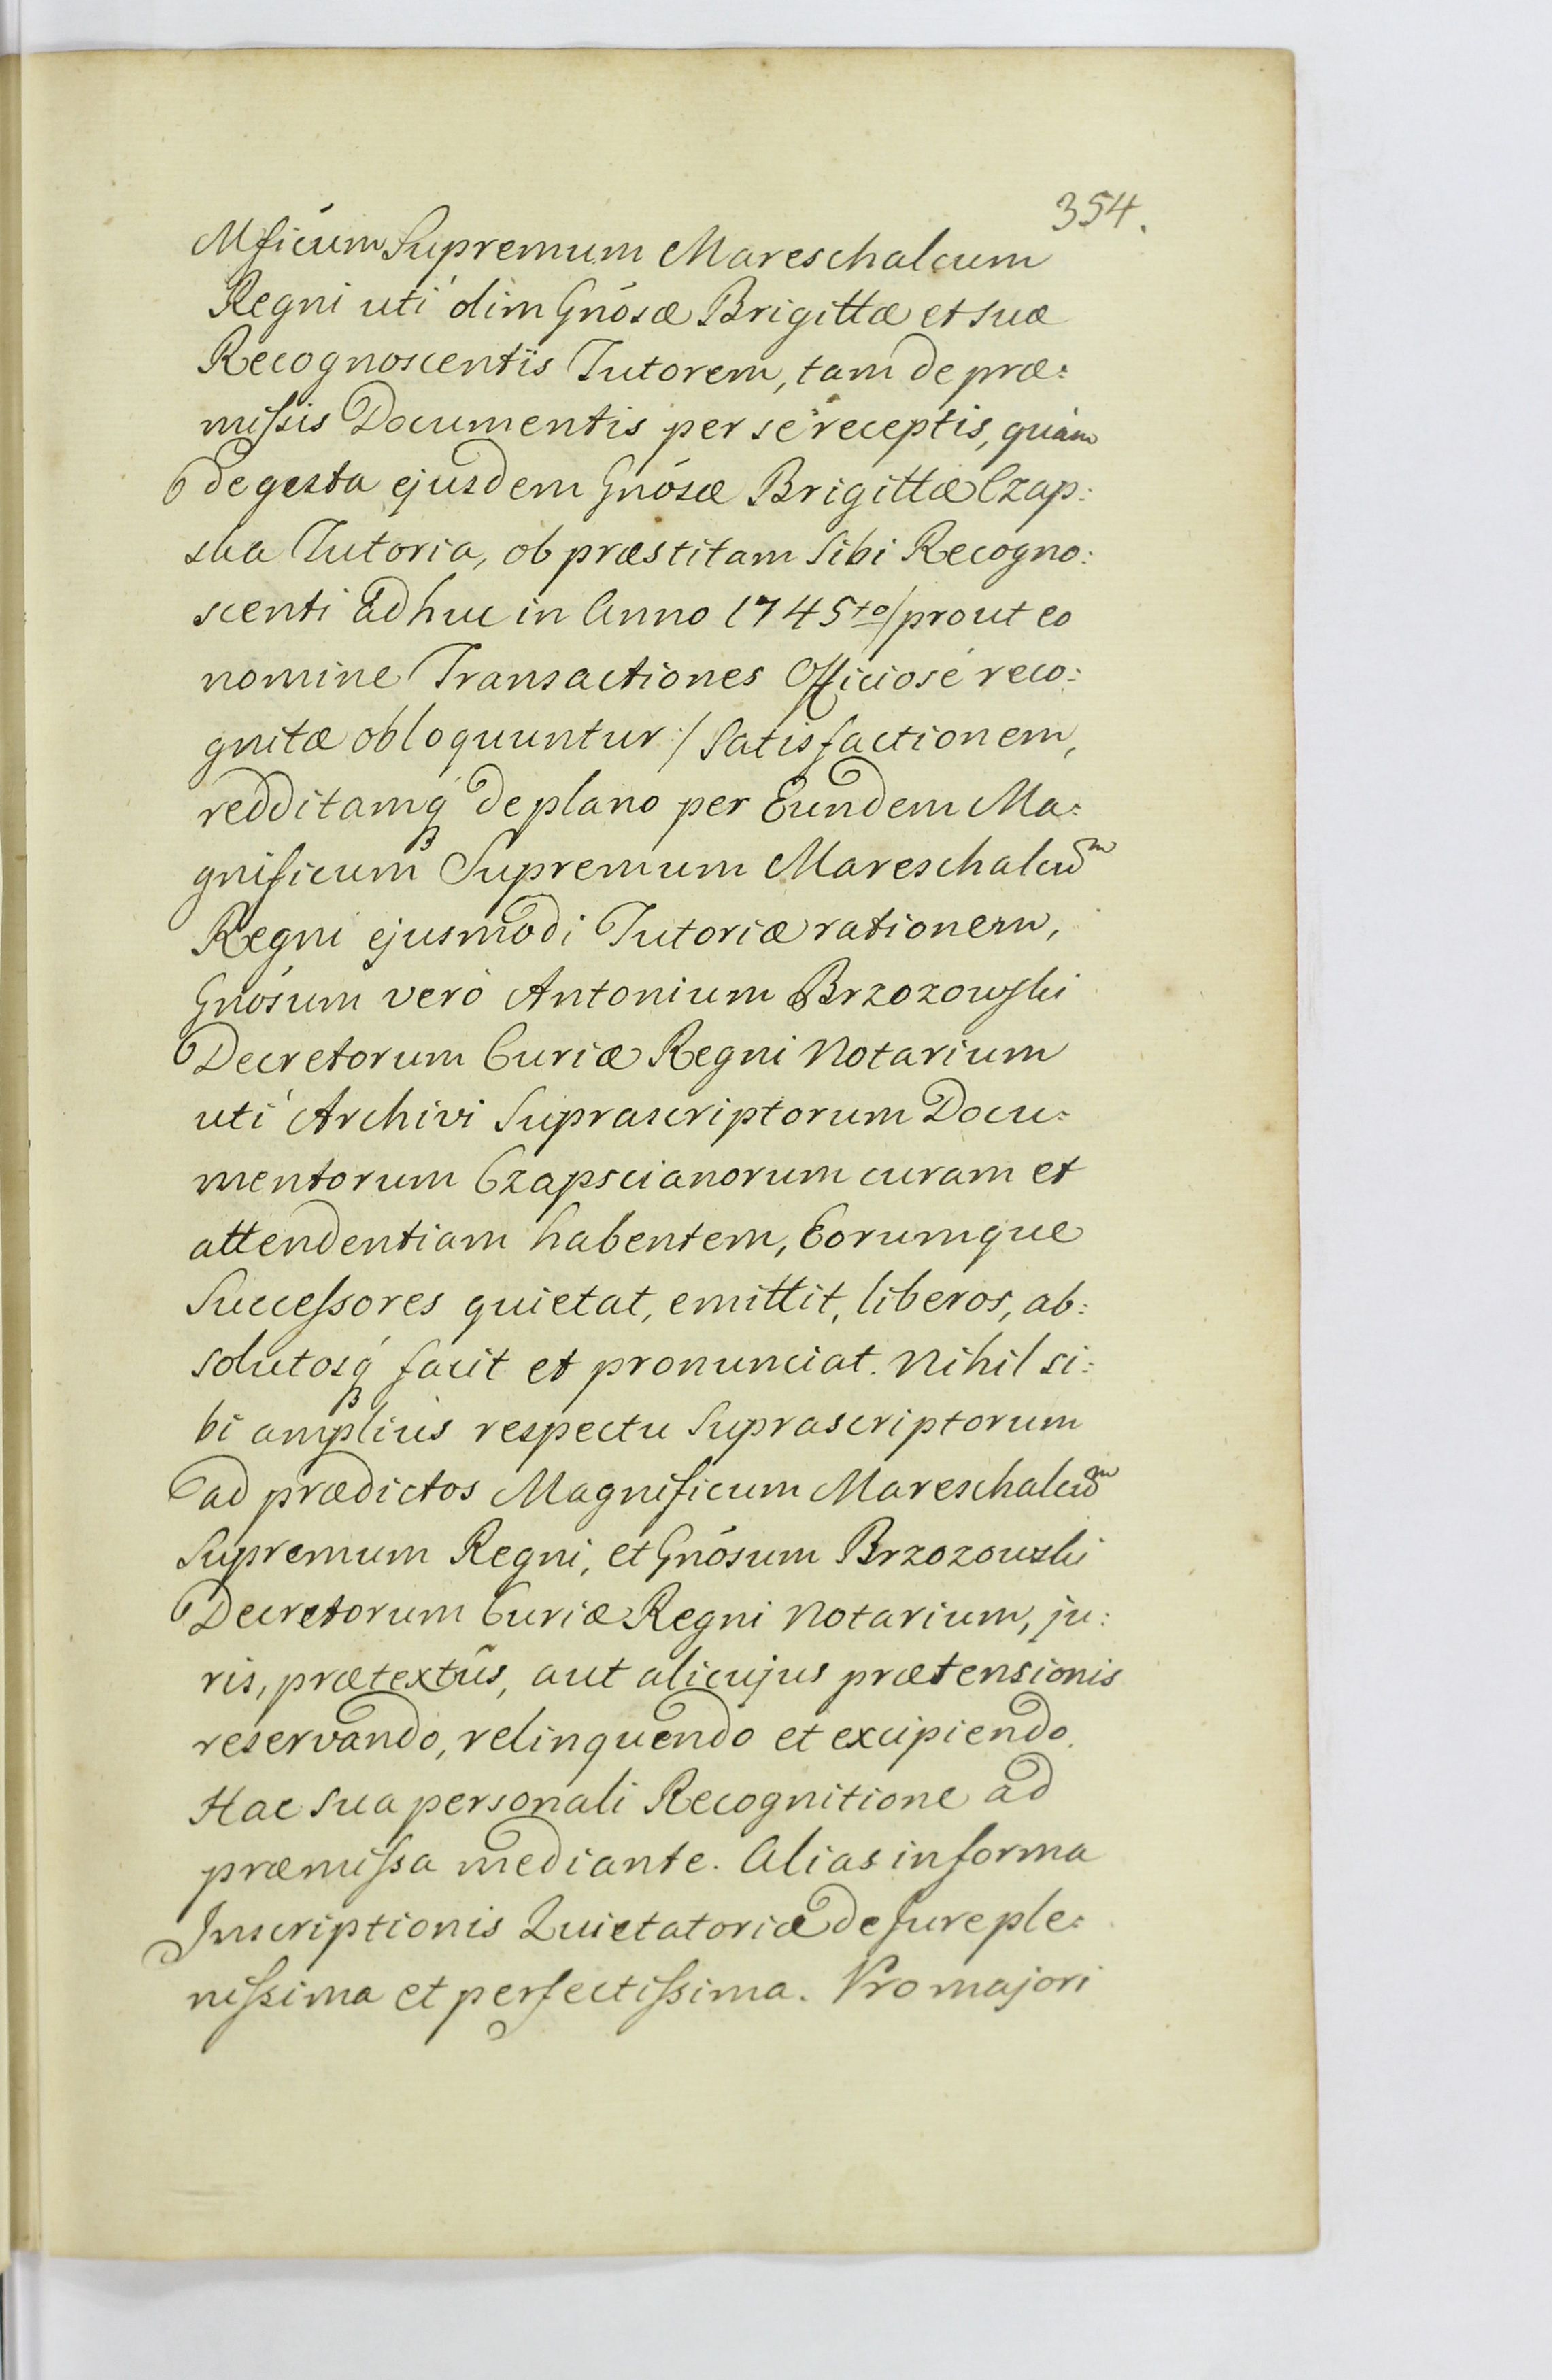 354.
Mficum Supremum Mareschalcum
Regni uti olim Gnosæ Brigittæ et suæ
Recognoscentis Tutorem, tam de præ:
missis Documentis per se receptis, quàm
de gesta ejusdem Gnosæ Brigittæ Czap:
ska Tutoria, ob præstitam sibi Recogno:
scenti adhuc in Anno 1745to/prout eo
nomine Transactiones Officiosè reco:
gnitæ obloquuntur:/ Satisfactionem,
redditamq́ de plano per Eundem Ma:
gnificum Supremum Mareschalcum
Regni ejusmodi Tutoriæ rationem,
Gnosum verò Antonium Brzozowski
Decretorum Curiæ Regni Notarium
uti Archivi Suprascriptorum Docu:
mentorum Czapscianorum curam et
attendentiam habentem, Eorumque
Successores quietat, emittit, liberos, ab:
solutosq́ facit et pronunciat. Nihil si:
bi ampliùs respectu Suprascriptorum
ad prædictos Magnificum Mareschalcum
Supremum Regni, et Gnosum Brzozowski
Decretorum Curiæ Regni Notarium, ju:
ris, prætextûs, aut alicujus prætensionis
reservando, relinquendo et excipiendo.
Hac sua personali Recognitione ad
præmissa mediante. Alias in forma
Inscriptionis Quietatoriæ de Jure ple:
nissima et perfectissima. Pro majori